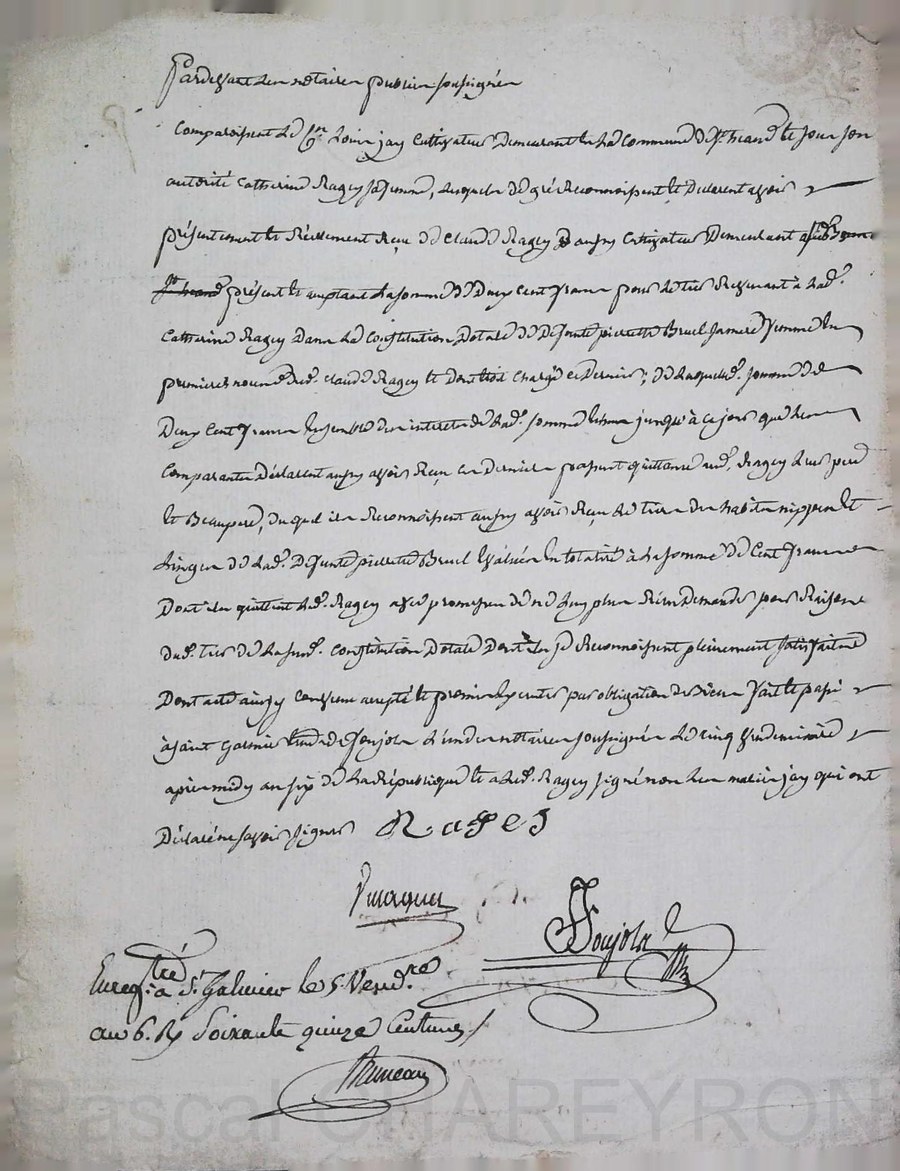 Pardevant les notaires publics soussignés
Comparoissent le C.en Louis jay Cultivateur Demeurant en la Commune de s.t heand et sous son
autorité Catherine Ragey sa femme, lesquels de gré Reconnoissent et Declarent avoir
présentement et Réellement Reçu de Claude Ragey aussy Cultivateur Demeurant
présent et acceptant la somme de Deux Cent francs pour le tiers Revenant à lad.e
Catherine Ragey Dans la Constitution Dotale de Defunte pierrette Bruel sa mere femme en
premieres noces dud. Claude Ragey et dont étoit Chargé ce Dernier; de laquelle somme de
Deux Cent francs Ensemble des interets de lad.e somme jusqu'à ce jour que les
Comparants Déclarent aussy avoir Reçu ce Dernier passent quittance aud. Ragey leur pere
et Beaupere, duquel ils Reconnoissent aussy avoir Reçu le tiers des habits nippes et
Linges de lad.e Defunte pierrette Bruel Evalués en totalité à la somme de Cent francs
Dont ils quittent led. Ragey avec promesse de ne luy plus Rien Demander pour Raison
dud. tiers de la susd. Constitution Dotale Dont ils se Reconnoissent pleinement satisfaits
Dont acte ainsy Convenu accepté et promis Executer par obligation de Biens fait et passé
à saint Galmier Etude de Soujols L'un des notaires soussignés le cinq vendemiaire
après midy an six de la République et a led. Ragey signé non les mariés jay qui ont
Déclaré ne savoir signer Ragey
Soujols
Enreg.tré à S.t Galmier le 5. Vend.re
an 6. R/ Soixante quinze Centimes /